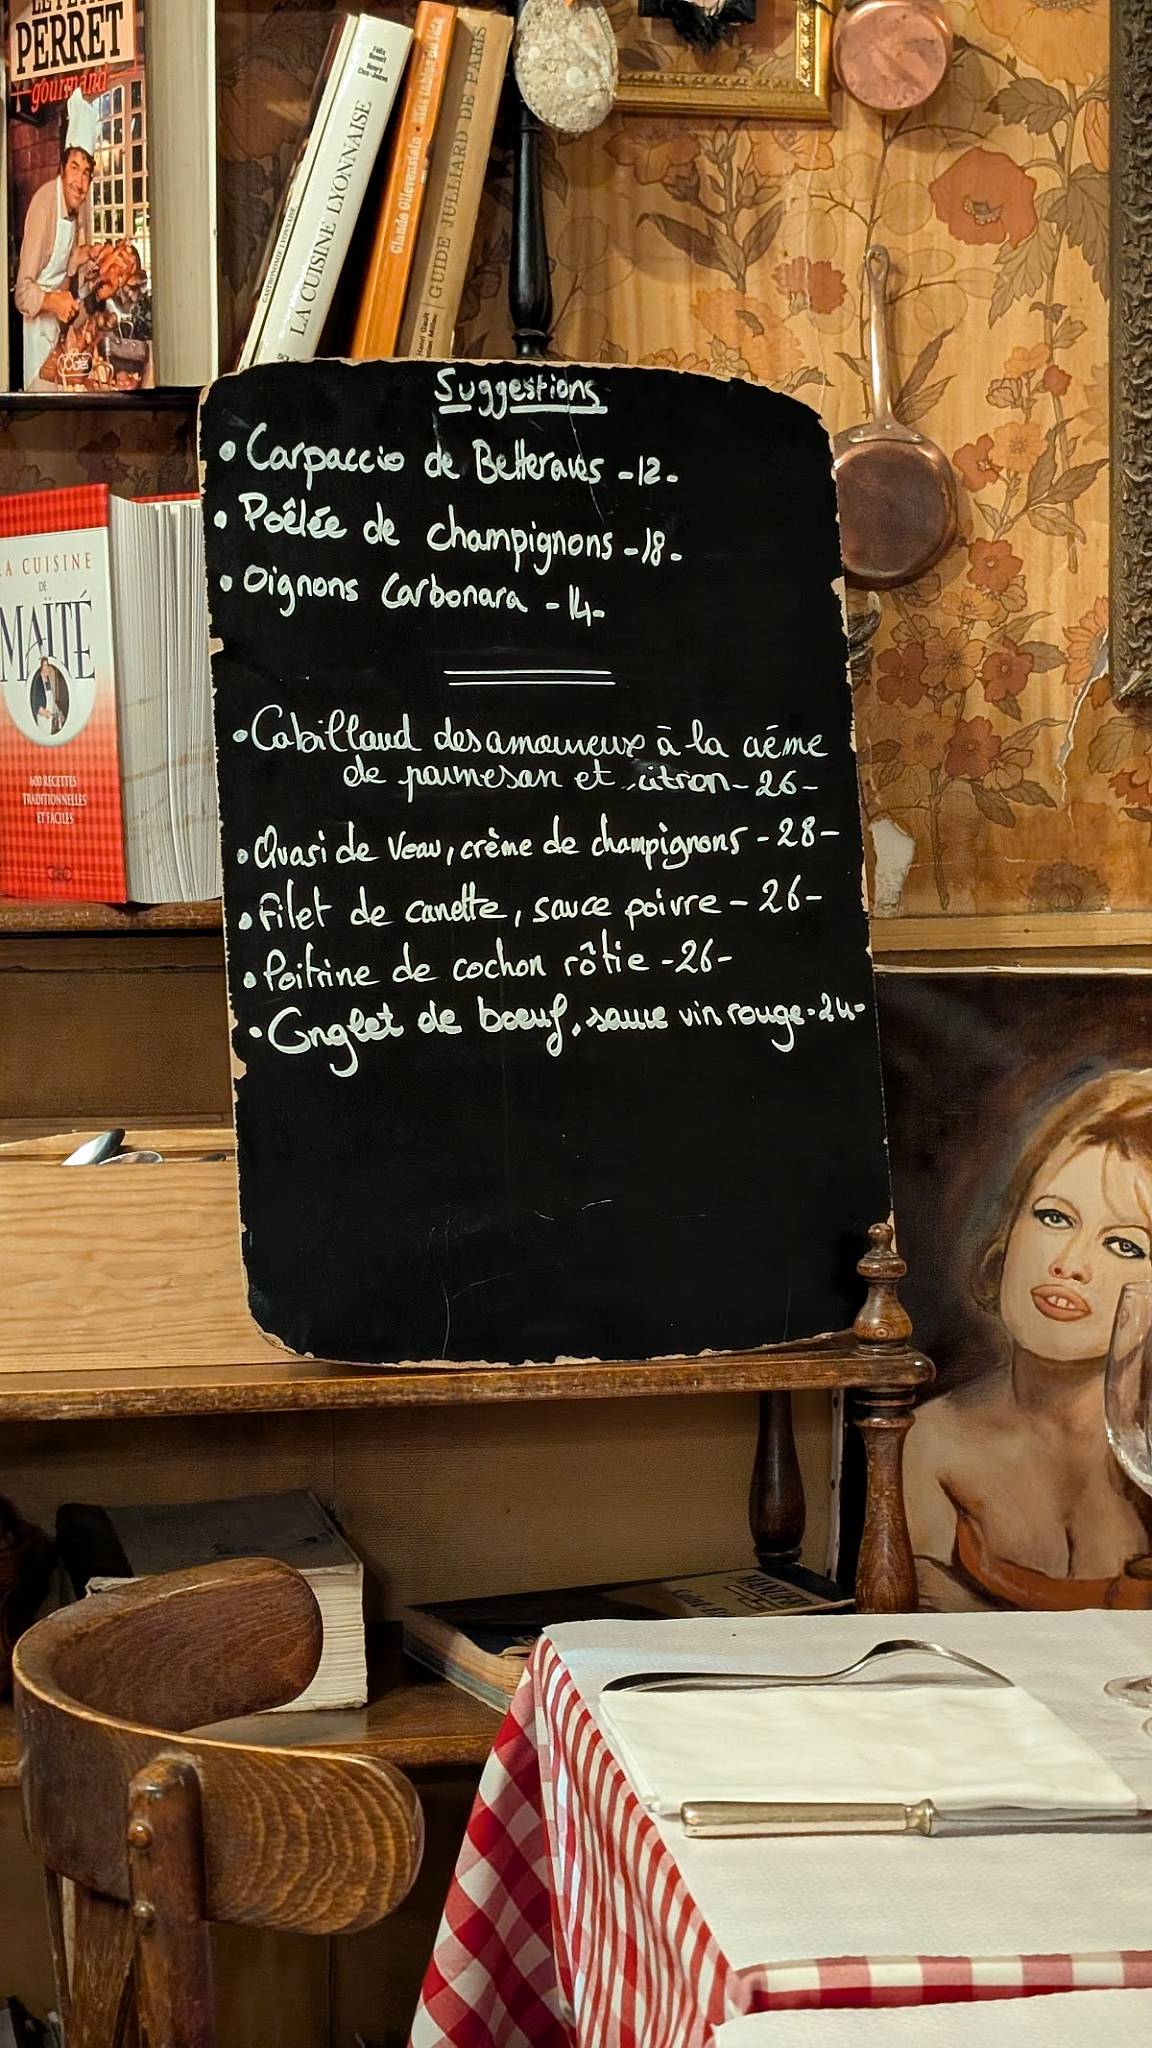 LE PETIT
PERRET
gourmand
GASTRONOMIE LYONNAISE
Félix
Benoit
Henry
Clos-Jouve
LA CUISINE LYONNAISE
Claude Ollevenstein • Mes tables de fête
Henri Gault
Christian Millau
GUIDE JULLIARD DE PARIS
LA CUISINE
DE
MAÏTÉ
600 RECETTES
TRADITIONNELLES
ET FACILES
Suggestions
• Carpaccio de Betteraves -12-
• Poêlée de champignons -18-
• Oignons Carbonara -14-
• Cabillaud des amoureux à la crème
de parmesan et citron - 26-
• Quasi de Veau, crème de champignons - 28-
• Filet de canette, sauce poivre - 26-
• Poitrine de cochon rôtie -26-
• Onglet de boeuf, sauce vin rouge - 24-